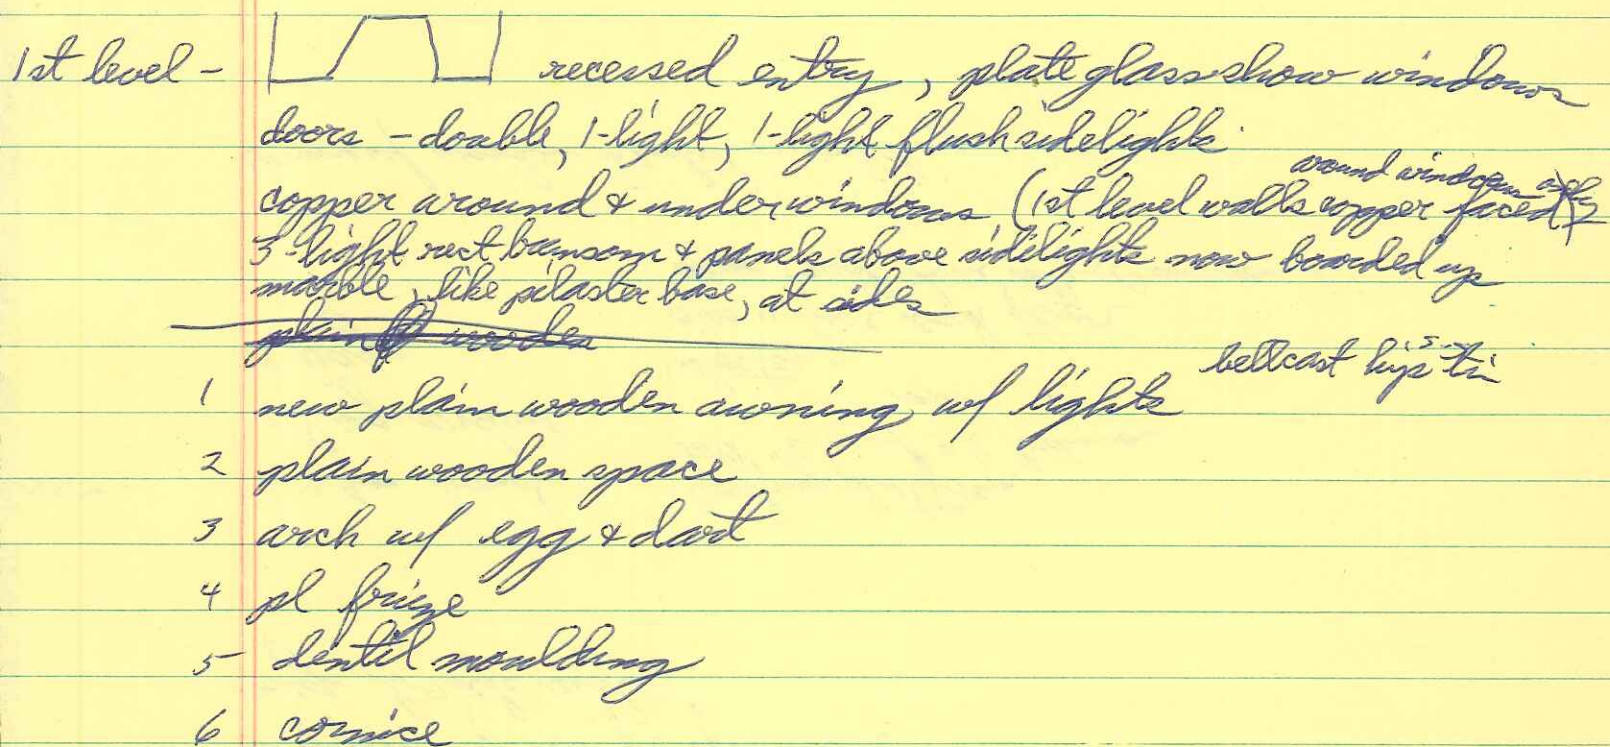 1st level - recessed entry, plate glass show windows
doors - double, 1-light, 1-light flush sidelights
around windows only
copper around & under windows (1st level walls copper faced)
3-light rect transom & panels above sidelights now boarded up
marble, like pilaster base, at sides
plain wooden
bellcast hip tin
1 new plain wooden awning w/ lights
2 plain wooden space
3 arch w/ egg & dart
4 pl frieze
5 dentil moulding
6 cornice